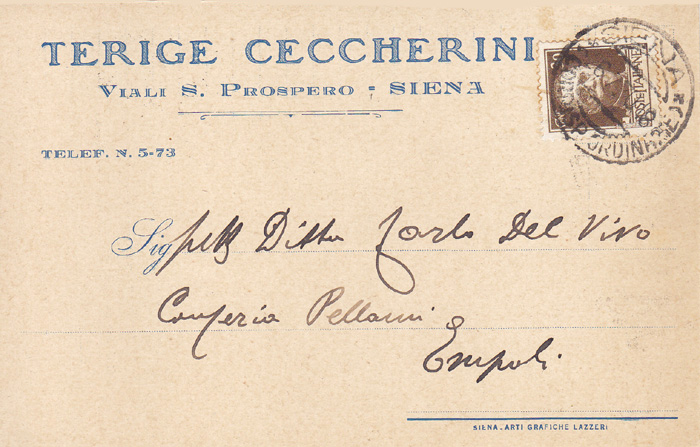 TERIGE CECCHERINI
VIALI S. PROSPERO - SIENA
TELEF. N. 5-73
Sig Ditta Carlo Del Vivo
Conceria Pellami
Empoli
SIENA - ARTI GRAFICHE LAZZERI